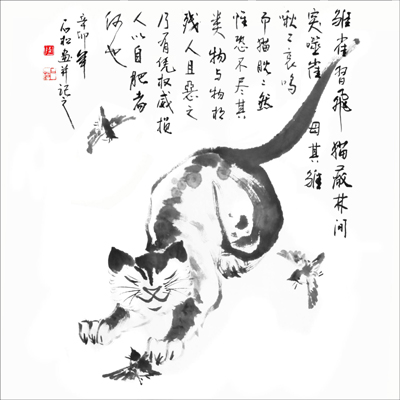 雏雀習飛 猫蔵林间
突噬雀 母其雏
啾々哀鸣
而猫眈々然
惟恐不尽其
类 物与物相
残人且恶之
乃有凭权威损
人以自肥者
何也
辛卯年
石松画并记之